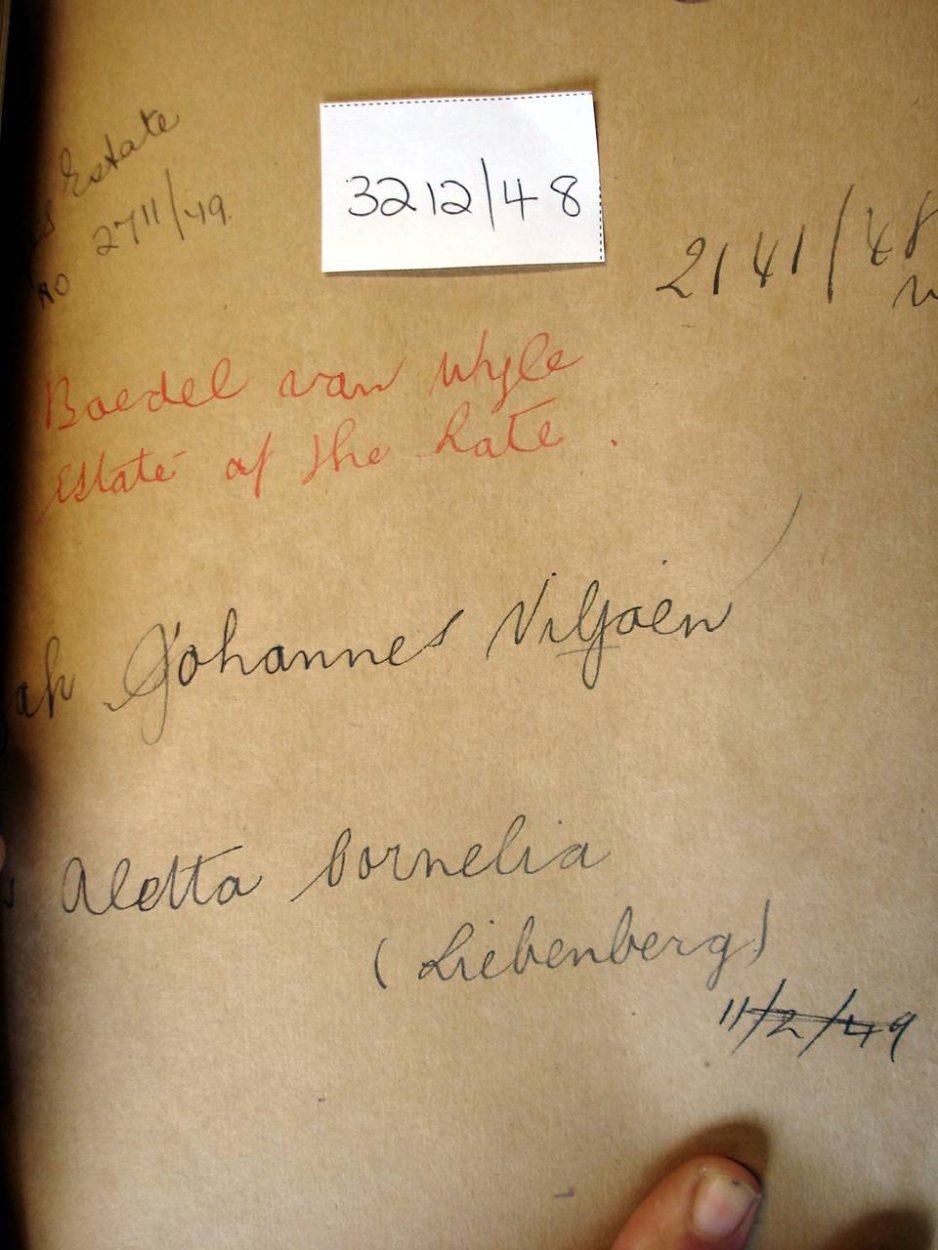 Estate
no 2711/49.
3212/48
2141/48
Boedel van Wyle
Estate of the Late.
Johannes Viljoen
Aletta Cornelia
(Liebenberg)
11/2/49